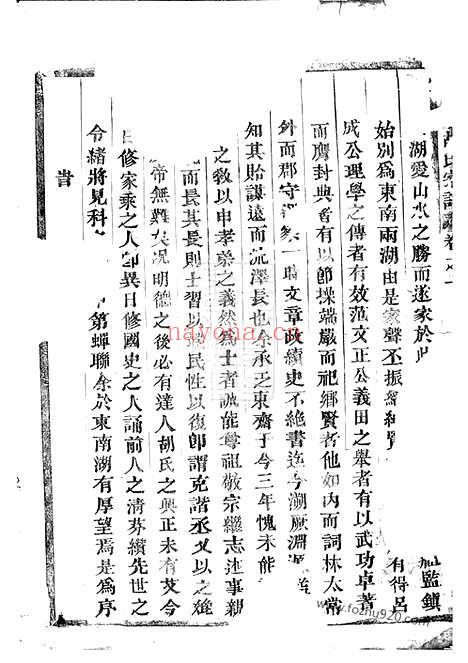 氏宗譜 卷之一
監鎮
有得呂
湖愛山水之勝而遂家於此
始別爲東南兩湖由是家聲丕振
成公理學之傳者有效范文正公義田之舉者有以武功卓著
而膺封典者有以節操端嚴而祀鄉賢者他如內而詞林太常
外而郡守 文章政績史不絕書迄今溯厥淵源
知其貽謀遠而流澤長也余承乏東齋于今三年愧未能
之敎以申孝弟之義然爲士者誠能尊祖敬宗繼志述事親
而長其長則士習以 民性以復卽謂克諧丞乂以之
帝無難矣况明德之後必有達人胡氏之興正未有艾今
日修家乘之人卽異日修國史之人誦前人之淸芬纘先世之
令緖將見科 第蟬聯余於東南湖有厚望焉是爲序
nayona.cn
www.fozhu920.com